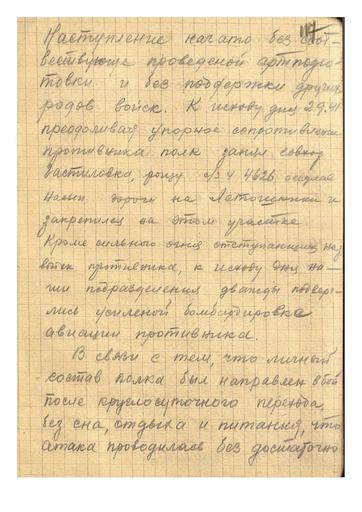 114
Наступление начато без соот-
ветствующе проведеной артподго-
товки и без поддержки других
родов войск. К исходу дня 2.9.41
преодолевая упорное сопротивление
противника полк занял совхоз
Вастиловка, рощу 4626 оседлав
дороги на Летошники и
закрепился на этом участке
Кроме сильного огня отступающих на
войск противника, к исходу дня на-
ши подразделения дважды подвер-
глись усиленой бомбардировке
авиации противника.
В связи с тем, что личный
состав полка был направлен в бой
после круглосуточного перехода
без сна, отдыха и питания, что
атака проводилась без достаточно